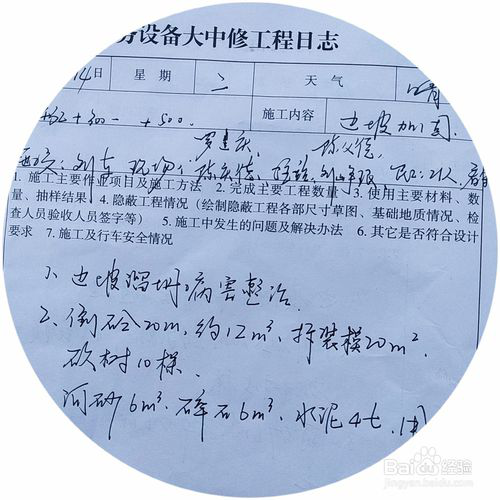 务设备大中修工程日志
14日 星期 二 天气 晴
+300- +500. 施工内容 边坡加固.
1. 施工主要作业项目及施工方法 2. 完成主要工程数量 3. 使用主要材料、数
量、抽样结果 4. 隐蔽工程情况（绘制隐蔽工程各部尺寸草图、基础地质情况、检
查人员验收人员签字等） 5. 施工中发生的问题及解决办法 6. 其它是否符合设计
要求 7. 施工及行车安全情况
1、边坡溜坍病害整治.
2、倒砼20m,约12m³,拆装模20m²,
砍树10棵.
河砂6m³,碎石6m³,水泥4七,
Baidu经验
jingyan.baidu.com